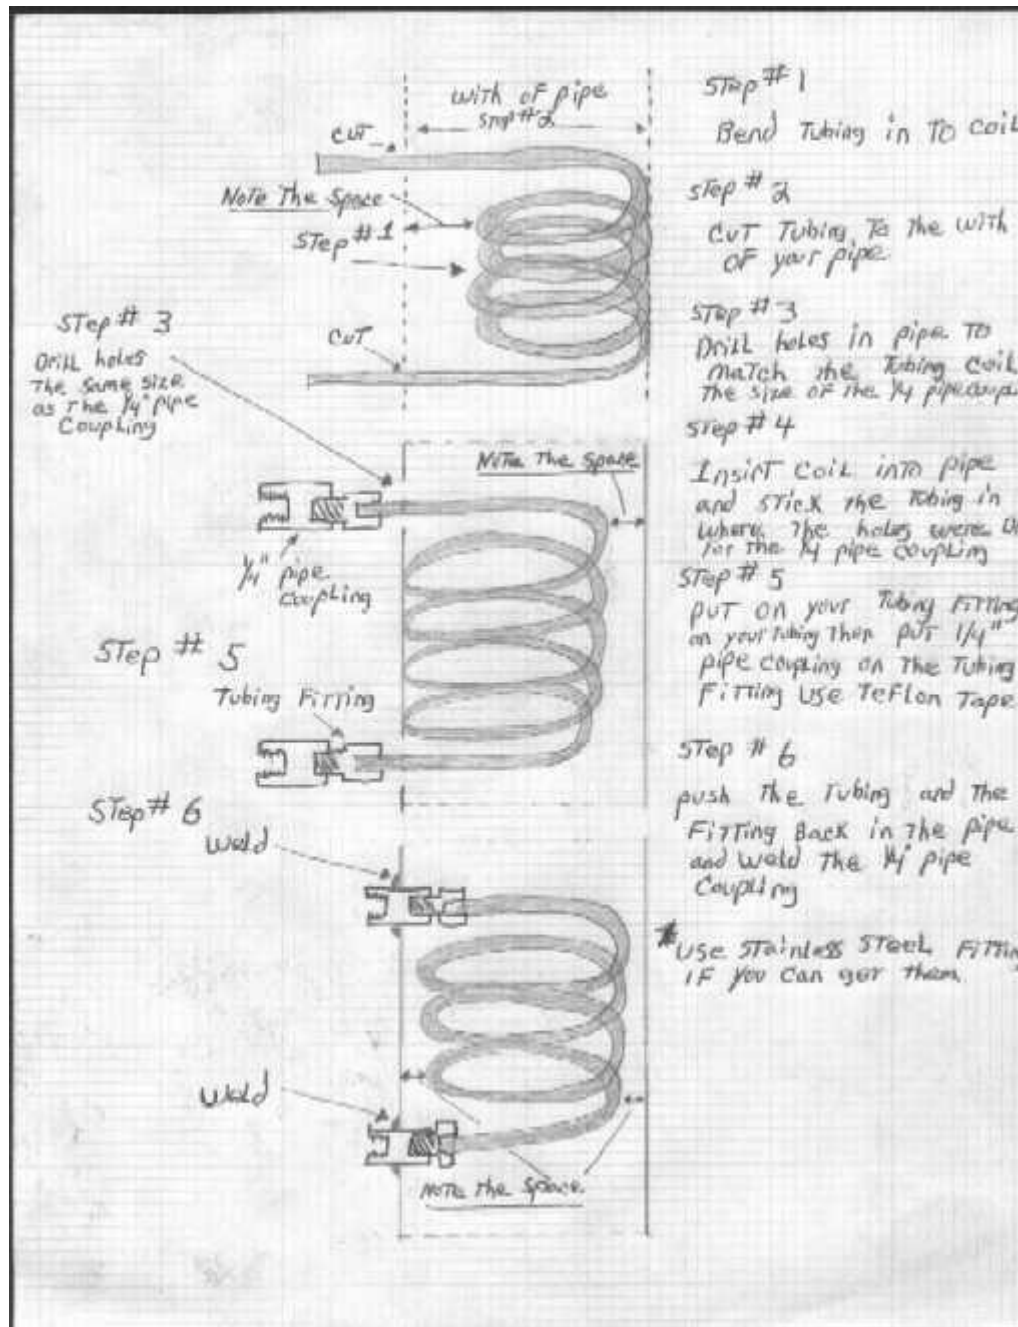 with of pipe
Step #2
CUT
Note The Space
STep #1
CUT
STep # 3
Drill holes
The same size
as The 1/4" pipe
Coupling
Note The Space
1/4" pipe
coupling
STep # 5
Tubing Fitting
STep # 6
Weld
Weld
Note the Space
STep # 1
Bend Tubing in To Coil
STep # 2
CUT Tubing To the with
OF your pipe
STep # 3
Drill holes in pipe To
match the Tubing Coil
The size of the 1/4 pipe
STep # 4
Insirt Coil into pipe
and stick the Tubing in
where The holes were
for the 1/4 pipe coupling
STep # 5
put on your Tubing Fitting
on your tubing then put 1/4"
pipe coupling on The Tubing
Fitting Use Teflon Tape
STep # 6
push The Tubing and The
Fitting Back in The pipe
and weld The 1/4" pipe
Coupling
* Use STainless STeel
IF you Can get them